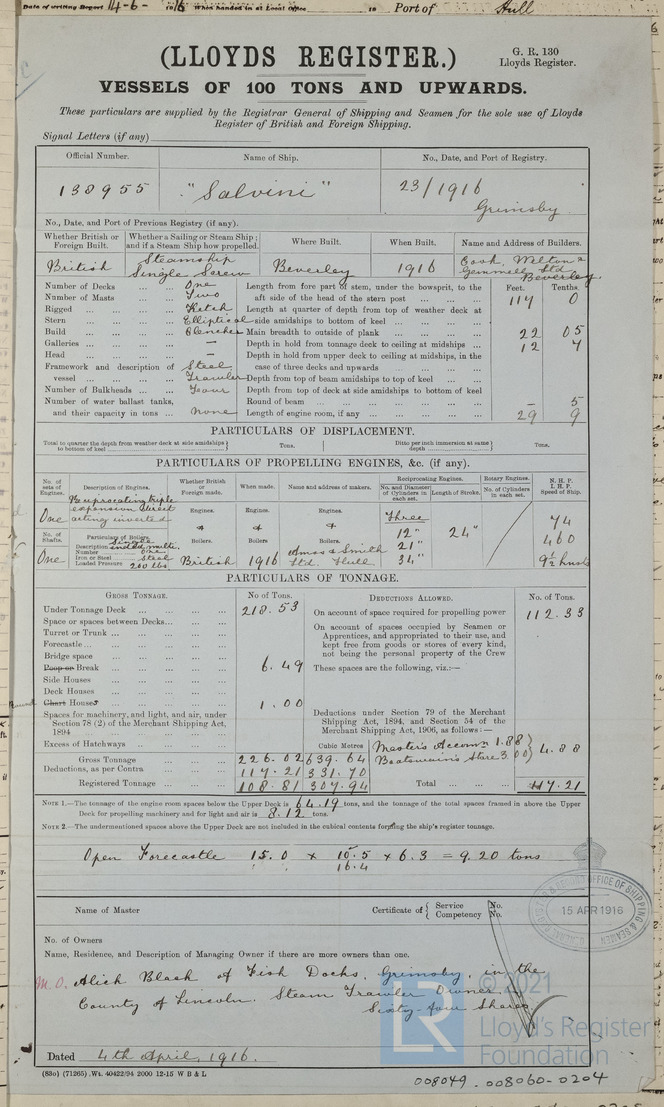 Date of writing Report 14-6- 1916 When handed in at Local Office 19 Port of Hull
(LLOYDS REGISTER.)
G. R. 130
Lloyds Register.
VESSELS OF 100 TONS AND UPWARDS.
These particulars are supplied by the Registrar General of Shipping and Seamen for the sole use of Lloyds
Register of British and Foreign Shipping.
Signal Letters (if any)
Official Number. Name of Ship. No., Date, and Port of Registry.
138955 "Salvini" 23/1916
Grimsby
No., Date, and Port of Previous Registry (if any).
Whether British or Foreign Built. Whether a Sailing or Steam Ship; and if a Steam Ship how propelled. Where Built. When Built. Name and Address of Builders.
British Steamship Single Screw Beverley 1916 Cook, Welton & Gemmell Ltd Beverley.
Feet. Tenths
Number of Decks One Length from fore part of stem, under the bowsprit, to the
Number of Masts Two aft side of the head of the stern post 117 0
Rigged Ketch Length at quarter of depth from top of weather deck at
Stern Elliptical side amidships to bottom of keel
Build Clencher Main breadth to outside of plank 22 05
Galleries — Depth in hold from tonnage deck to ceiling at midships 12 7
Head — Depth in hold from upper deck to ceiling at midships, in the
Framework and description of Steel case of three decks and upwards
vessel Trawler Depth from top of beam amidships to top of keel
Number of Bulkheads Four Depth from top of deck at side amidships to bottom of keel
Number of water ballast tanks, Round of beam — 5
and their capacity in tons None Length of engine room, if any 29 9
PARTICULARS OF DISPLACEMENT.
Total to quarter the depth from weather deck at side amidships to bottom of keel Tons. Ditto per inch immersion at same depth Tons.
PARTICULARS OF PROPELLING ENGINES, &c. (if any).
No. of sets of Engines. Description of Engines. Whether British or Foreign made. When made. Name and address of makers. Reciprocating Engines. Rotary Engines. N. H. P.
I. H. P.
Speed of Ship.
No. and Diameter of Cylinders in each set. Length of Stroke. No. of Cylinders in each set.
One Reciprocating triple expansion direct acting inverted Engines. Engines. Engines. Three 74
No. of Shafts. Particulars of Boilers & Boilers. & Boilers. & Boilers. 12" 24" 460
One Description Single ended multi. Number One Iron or Steel Steel Loaded Pressure 200 lbs British 1916 Amos & Smith Ltd. Hull 21" 34" 9½ knots
PARTICULARS OF TONNAGE.
GROSS TONNAGE. No of Tons. DEDUCTIONS ALLOWED. No. of Tons.
Under Tonnage Deck 218.53 On account of space required for propelling power 112.33
Space or spaces between Decks On account of spaces occupied by Seamen or
Turret or Trunk Apprentices, and appropriated to their use, and
Forecastle kept free from goods or stores of every kind,
Bridge space not being the personal property of the Crew
Poop or Break 6.49 These spaces are the following, viz.:—
Side Houses
Deck Houses
Chart Houses 1.00
Spaces for machinery, and light, and air, under Deductions under Section 79 of the Merchant
Section 78 (2) of the Merchant Shipping Act, Shipping Act, 1894, and Section 54 of the
1894 Merchant Shipping Act, 1906, as follows:—
Excess of Hatchways Cubic Metres Master's Accomn 1.88
Gross Tonnage 226.02 639.64 Boatswain's Store 3.00 4.88
Deductions, as per Contra 117.21 331.70
Registered Tonnage 108.81 307.94 Total 117.21
NOTE 1.—The tonnage of the engine room spaces below the Upper Deck is 64.19 tons, and the tonnage of the total spaces framed in above the Upper
Deck for propelling machinery and for light and air is 8.12 tons.
NOTE 2.—The undermentioned spaces above the Upper Deck are not included in the cubical contents forming the ship's register tonnage.
Open Forecastle 15.0 x 10.5 x 6.3 = 9.20 tons
16.4
Name of Master Certificate of Service No.
Competency No.
15 APR 1916
No. of Owners
Name, Residence, and Description of Managing Owner if there are more owners than one.
M.O. Alick Black of Fish Docks, Grimsby, in the
County of Lincoln. Steam Trawler Owner
Sixty-four Shares
LR ©2021
Lloyd's Register
Foundation
Dated 4th April, 1916.
(83o) (71265). Wt. 40422/94 2000 12-15 W B & L
008049-008060-0204